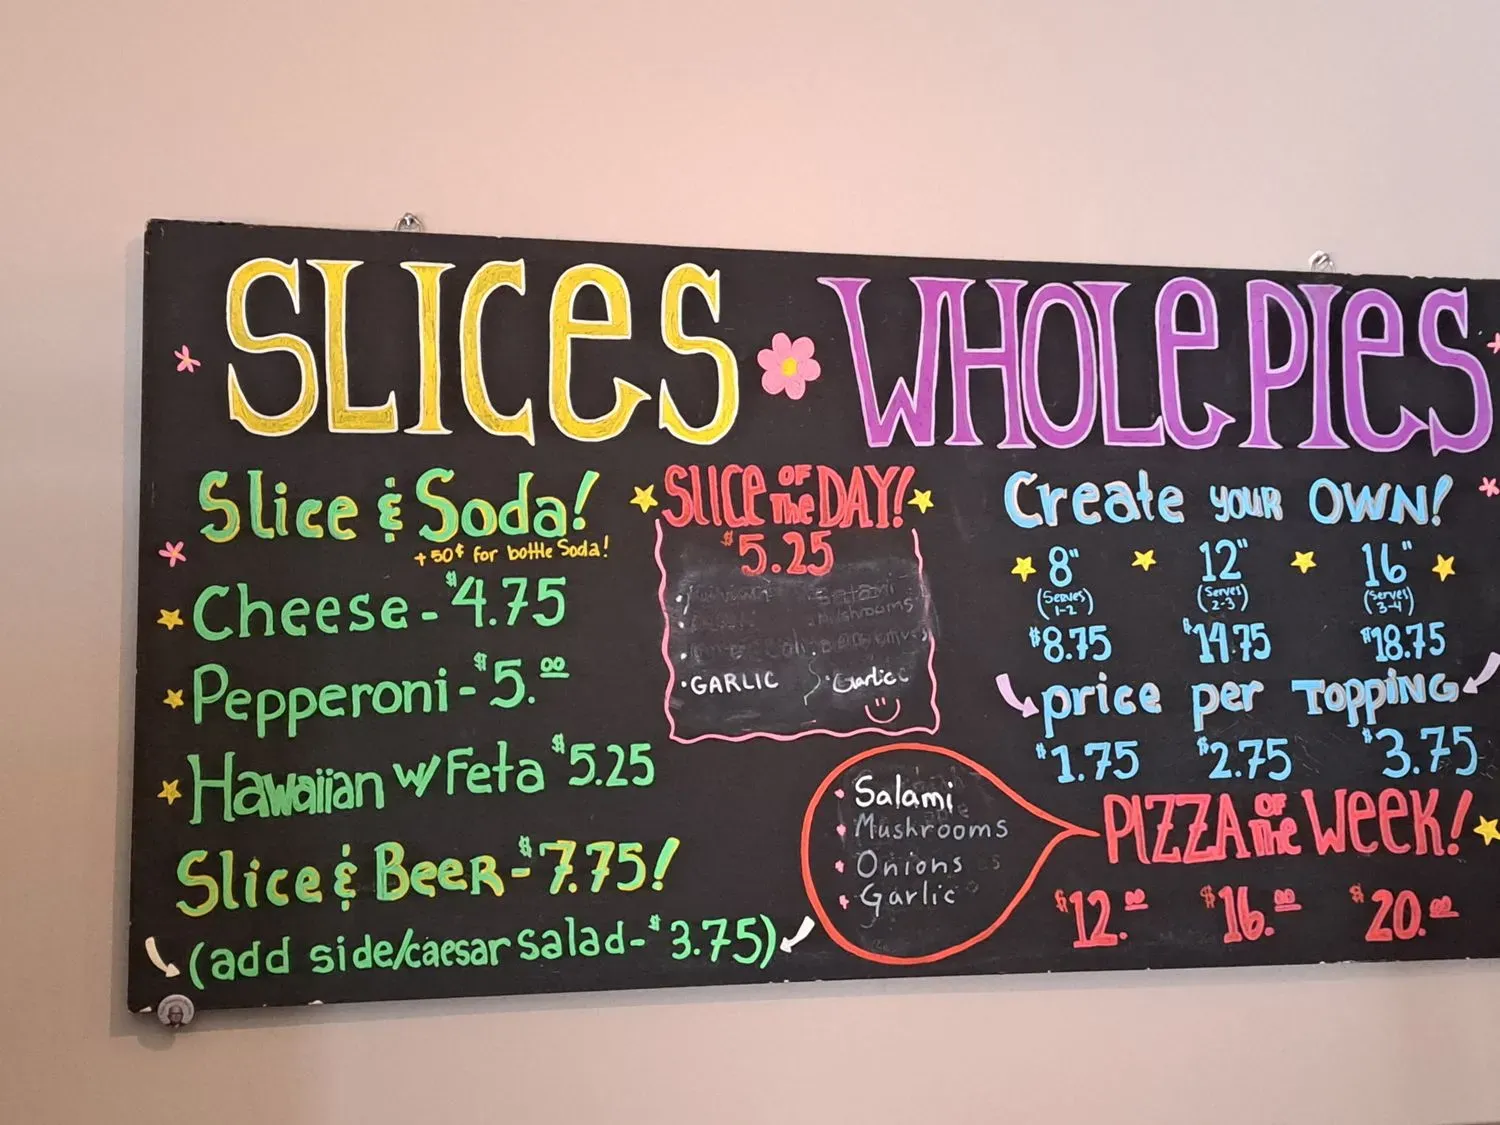 SLICES
Slice & Soda!
+50¢ for bottle Soda!
Cheese - $4.75
Pepperoni - $5.00
Hawaiian w/ Feta $5.25
Slice & Beer - $7.75!
(add side/caesar salad - $3.75)
SLICE OF THE DAY!
$5.25
Salami
Mushrooms
• GARLIC • Garlic
WHOLE PIES
Create YOUR OWN!
8" 12" 16"
(Serves 1-2) (Serves 2-3) (Serves 3-4)
$8.75 $14.75 $18.75
price per TOPPING
$1.75 $2.75 $3.75
PIZZA OF THE WEEK!
$12.00 $16.00 $20.00
Salami
Mushrooms
Onions
Garlic